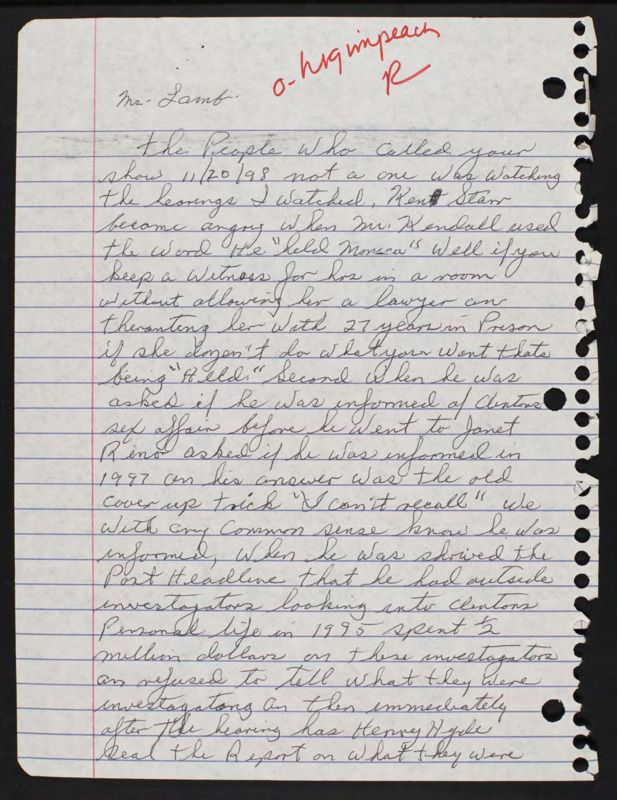 o-hrg impeach
R
Mr. Lamb.
The People Who Called your
show 11/20/98 not a one was watching
the hearings I watched, Ken Starr
become angry when Mr. Kendall used
the word He "held Monica's" Well if you
keep a witness for hrs in a room
without allowing her a lawyer an
theranting her with 27 years in Prison
if she dozen't do what your want thats
being "Held." Second when he was
asked if he was informed of Clintons
sex affair before he went to Janet
Rino asked if he was informed in
1997 an his answer was the old
cover up trick "I can't recall" We
with any common sense know he was
informed, When he was showed the
Post Headline that he had outside
investagators looking into Clintons
Personal life in 1995 spent 1/2
million dollars on these investagators
an refused to tell what they were
investagatong an then immediately
after the hearing has Henry Hyde
seal the Report on what they were